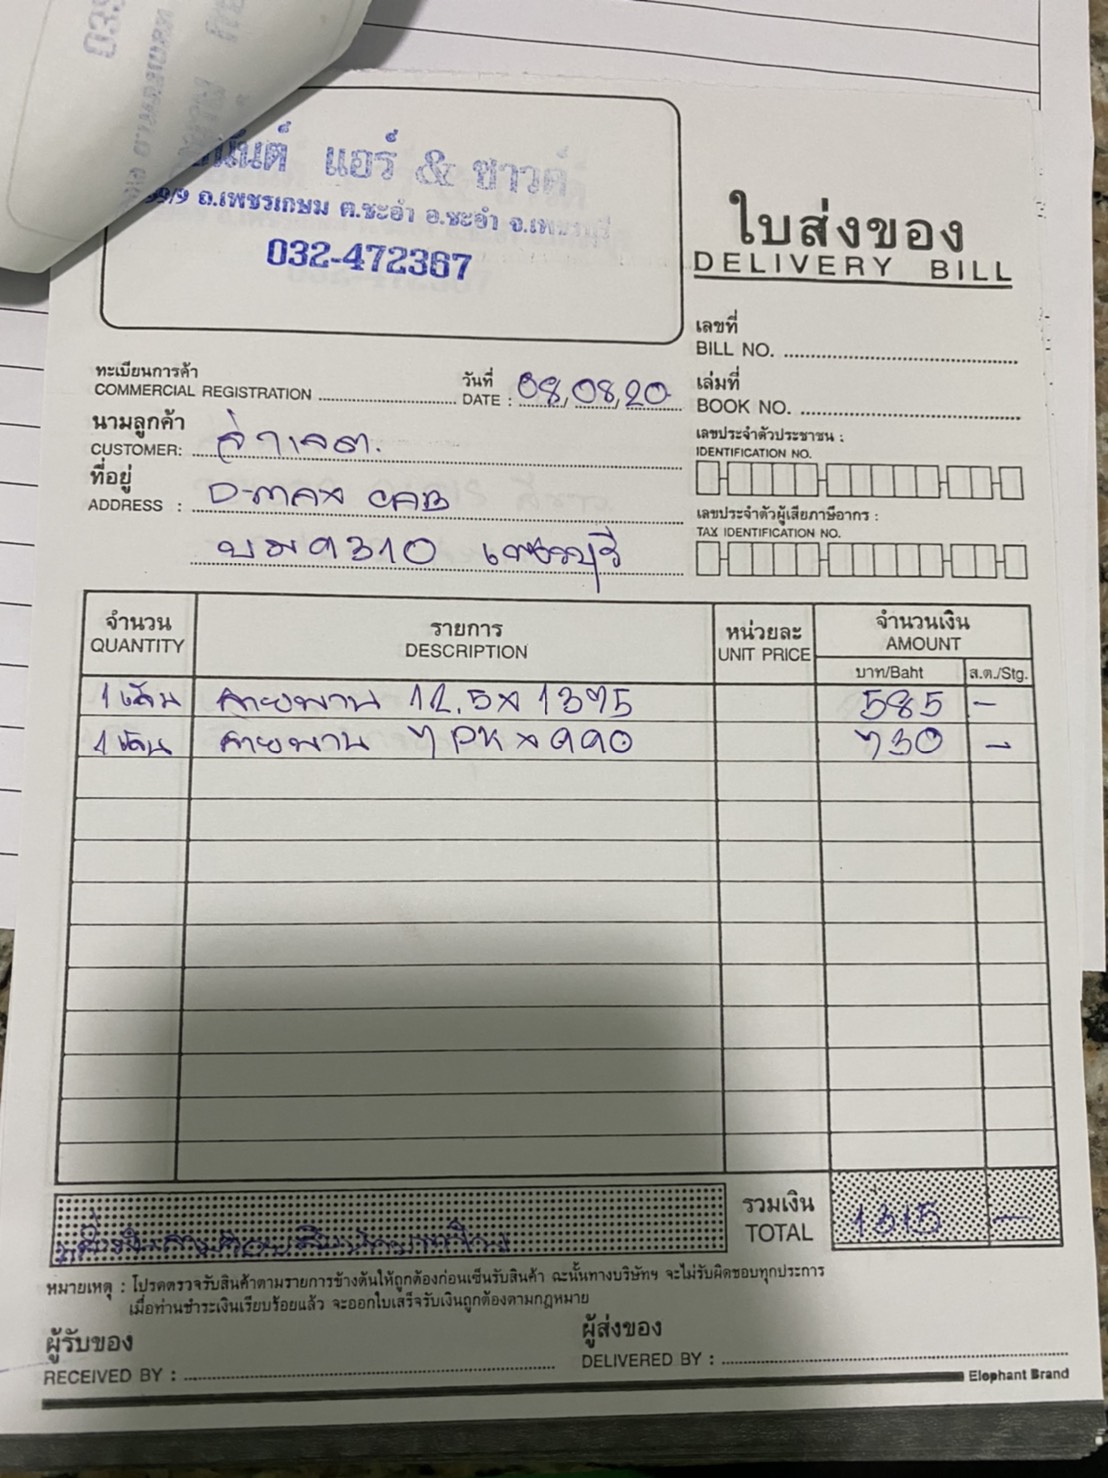 แอร์ & ซาวด์
99/9 ถ.เพชรเกษม ต.ชะอำ อ.ชะอำ จ.เพชรบุรี
032-472367
ใบส่งของ
DELIVERY BILL
เลขที่
BILL NO.
ทะเบียนการค้า
COMMERCIAL REGISTRATION
วันที่
DATE : 08,08,20
เล่มที่
BOOK NO.
นามลูกค้า
CUSTOMER:
เลขประจำตัวประชาชน :
IDENTIFICATION NO.
ที่อยู่
ADDRESS : D-MAX CAB
บม 9310 เพชรบุรี
เลขประจำตัวผู้เสียภาษีอากร :
TAX IDENTIFICATION NO.
จำนวน รายการ หน่วยละ จำนวนเงิน
QUANTITY DESCRIPTION UNIT PRICE AMOUNT
บาท/Baht ส.ต./Stg.
1 เส้น สายพาน 12.5 x 1375 585 -
1 เส้น สายพาน 7 PK x 990 730 -
รวมเงิน
TOTAL 1315 -
หมายเหตุ : โปรดตรวจรับสินค้าตามรายการข้างต้นให้ถูกต้องก่อนเซ็นรับสินค้า ฉะนั้นทางบริษัทฯ จะไม่รับผิดชอบทุกประการ
เมื่อท่านชำระเงินเรียบร้อยแล้ว จะออกใบเสร็จรับเงินถูกต้องตามกฎหมาย
ผู้รับของ
RECEIVED BY :
ผู้ส่งของ
DELIVERED BY :
Elephant Brand